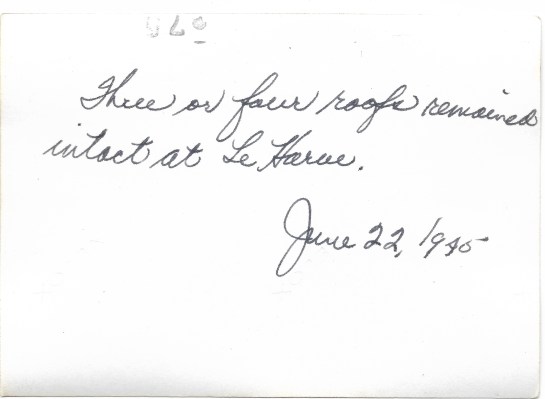 Three or four roofs remained
intact at Le Harve.
June 22, 1945